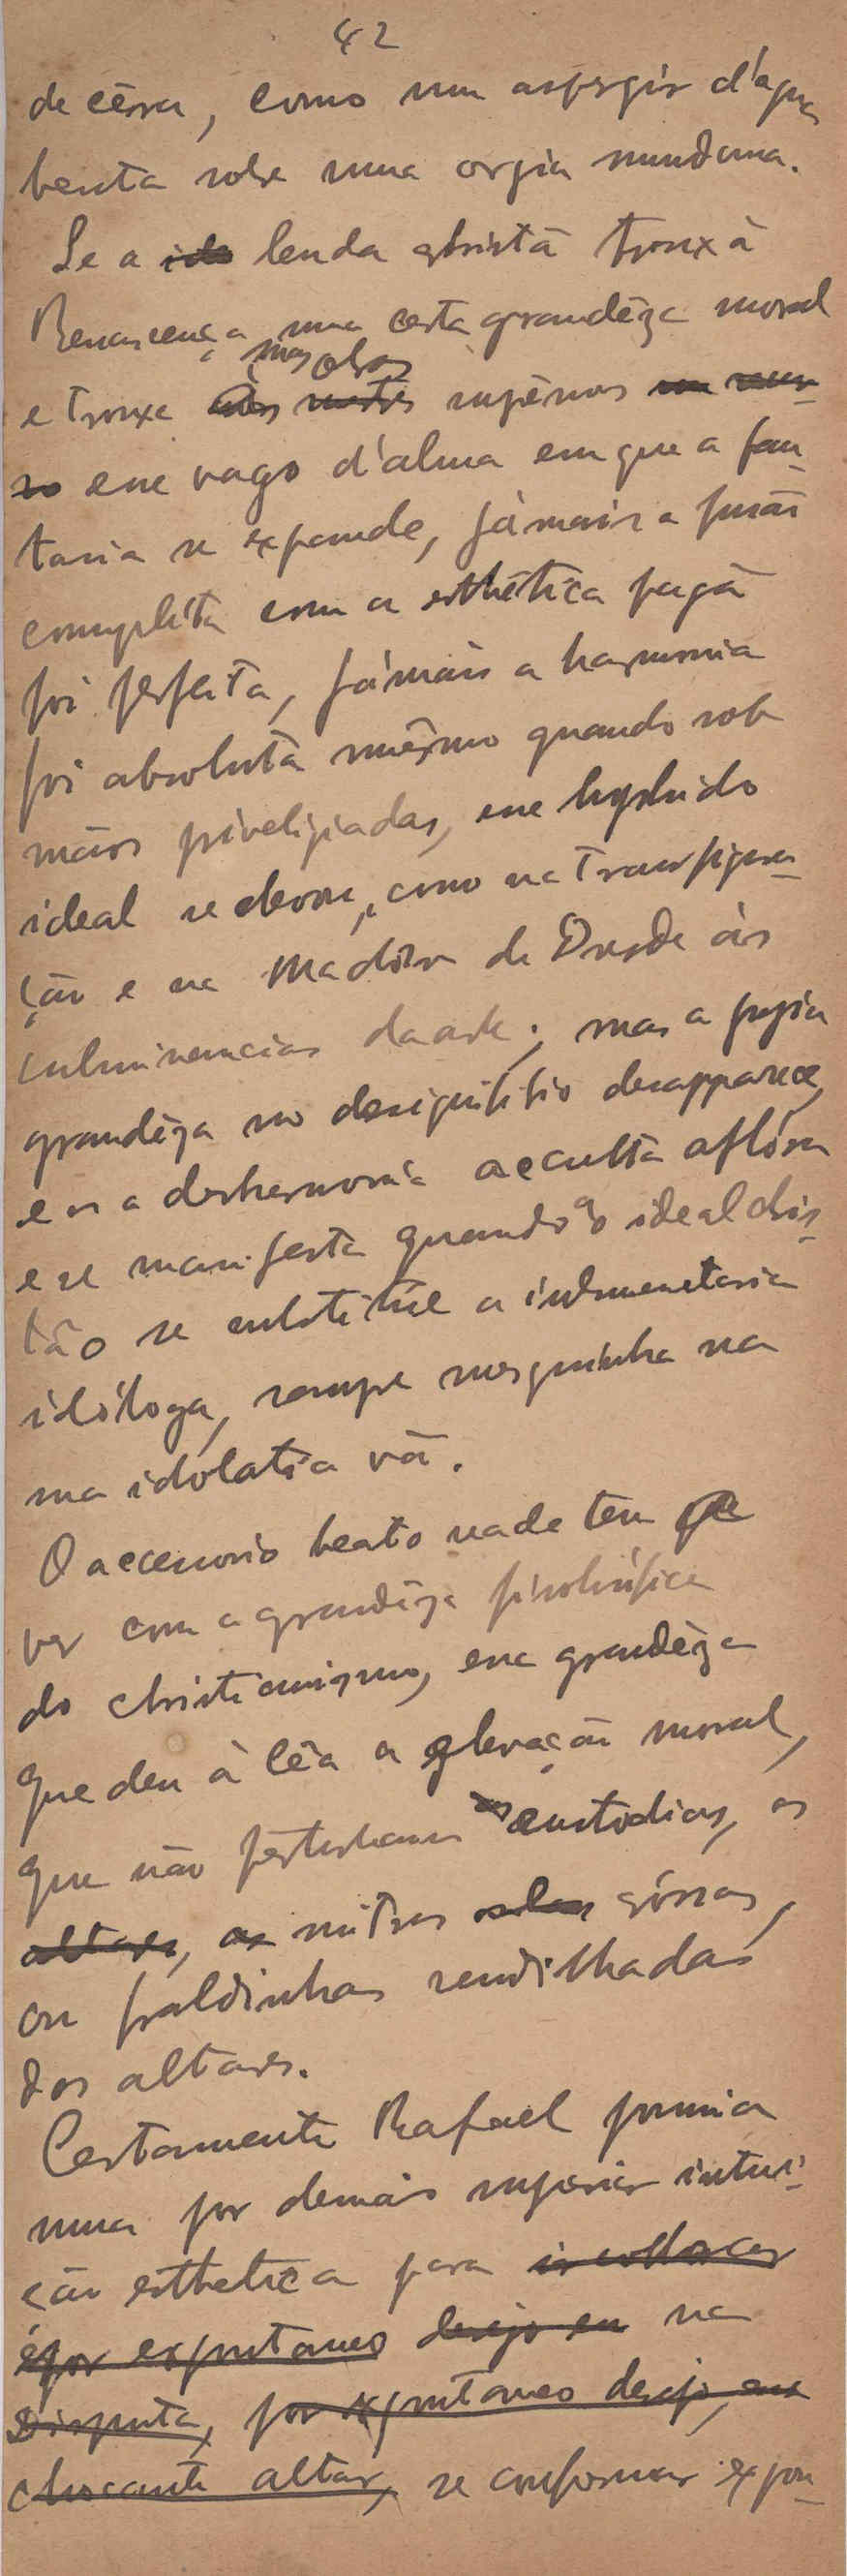 42
de cêra, como um aspergir d'agua
benta sobre uma orgia mundana.
Se a ido lenda christã troux à
Renascença uma certa grandêza moral
mas obras
e trouxe supêrnos
esse vago d'alma em que a fan-
tasia se expande, jámais a fusão
complêta com a esthética pagã
foi perfeita, jámais a harmonia
foi absoluta mêsmo quando sob
mãos priveligiadas, esse hybrido
ideal se elevou, como na Transfigura-
ção e na Madôna de Dresde às
culminancias da arte; mas a propria
grandêza no desiquilibrio desapparece,
e a desharmonia occulta aflóra
e se manifesta quando ao ideal chris-
tão se substitúe a indumentaria
idóloga, sempre mesquinha na
sua idolatria vã.
O accessorio beato nada tem que
ver com a grandêza filosófica
do christianismo, essa grandêza
que deu à léa a elevação moral,
que não perturbam as custodias, as
altares, as mitras górras,
ou fraldinhas rendilhadas
dos altares.
Certamente Rafael possuia
uma por demais superior intui-
ção esthetica para ir collocar
por expontaneo desejo em na
Disputa, por expontaneo desejo, esse
chocante altar, se conformar expon-